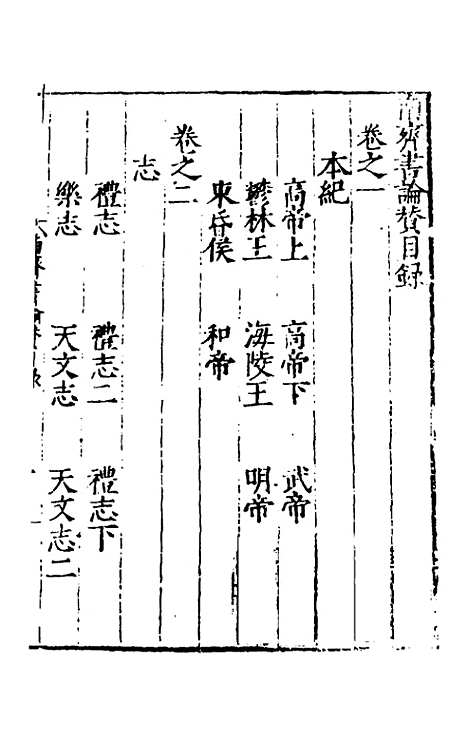 南齊書論贊目錄
卷之一
本紀
高帝上 高帝下 武帝
鬱林王 海陵王 明帝
東昏侯 和帝
卷之二
志
禮志 禮志二 禮志下
樂志 天文志 天文志二